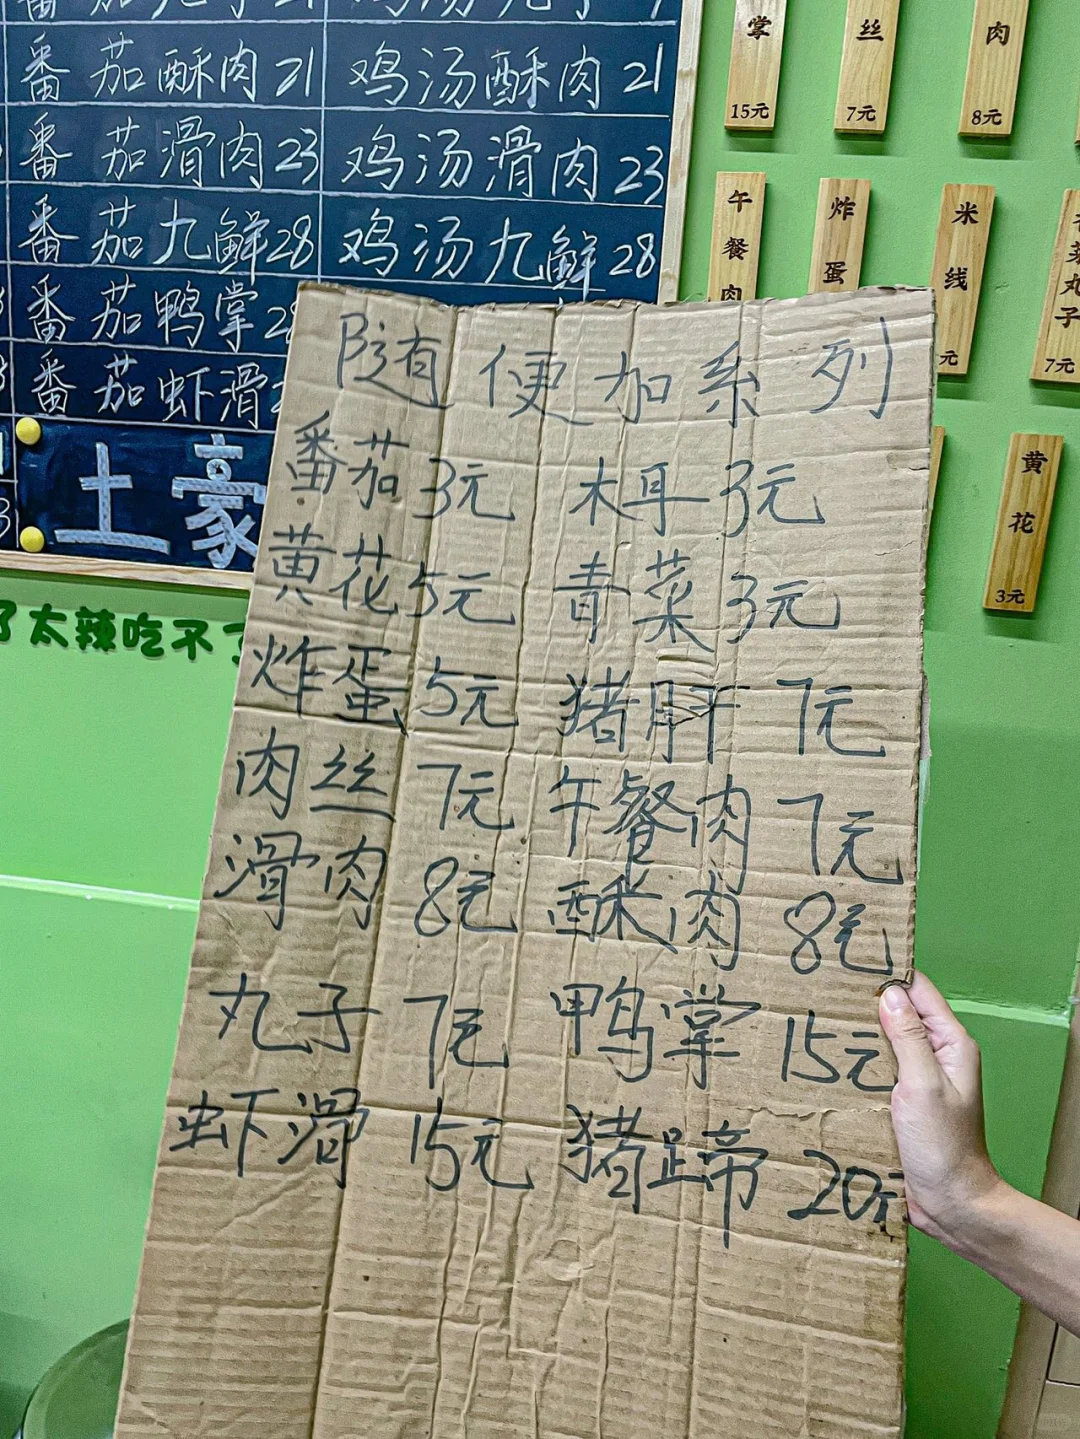 番茄酥肉21 鸡汤酥肉21
番茄滑肉23 鸡汤滑肉23
番茄九鲜28 鸡汤九鲜28
番茄鸭掌
番茄虾滑
土豪
太辣吃不了
掌
15元
丝
7元
肉
8元
午餐肉
炸蛋
米线
元
菜丸子
7元
黄花
3元
随便加系列
番茄3元 木耳3元
黄花5元 青菜3元
炸蛋5元 猪肝7元
肉丝7元 午餐肉7元
滑肉8元 酥肉8元
丸子7元 鸭掌15元
虾滑15元 猪蹄20元